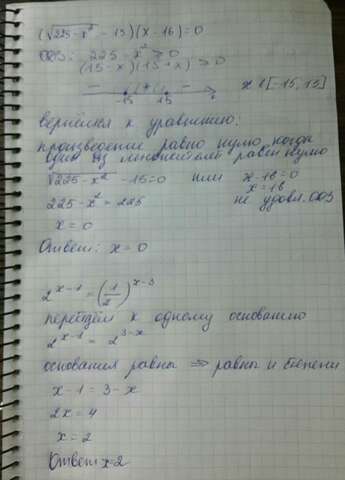 (√225 - x² - 15)(x - 16) = 0
ОДЗ: 225 - x² ≥ 0
(15 - x)(15 + x) ≥ 0
- (+) -
-15 15 x ∈ [-15, 15]
вернёмся к уравнению:
произведение равно нулю когда
один из множителей равен нулю
√225 - x² - 15 = 0 или x - 16 = 0
x = 16
225 - x² = 225 не удовл. ОДЗ
x = 0
Ответ: x = 0
2^(x-1) = (1/2)^(x-3)
перейдём к одному основанию
2^(x-1) = 2^(3-x)
основания равны ⇒ равны и степени
x - 1 = 3 - x
2x = 4
x = 2
Ответ: x = 2